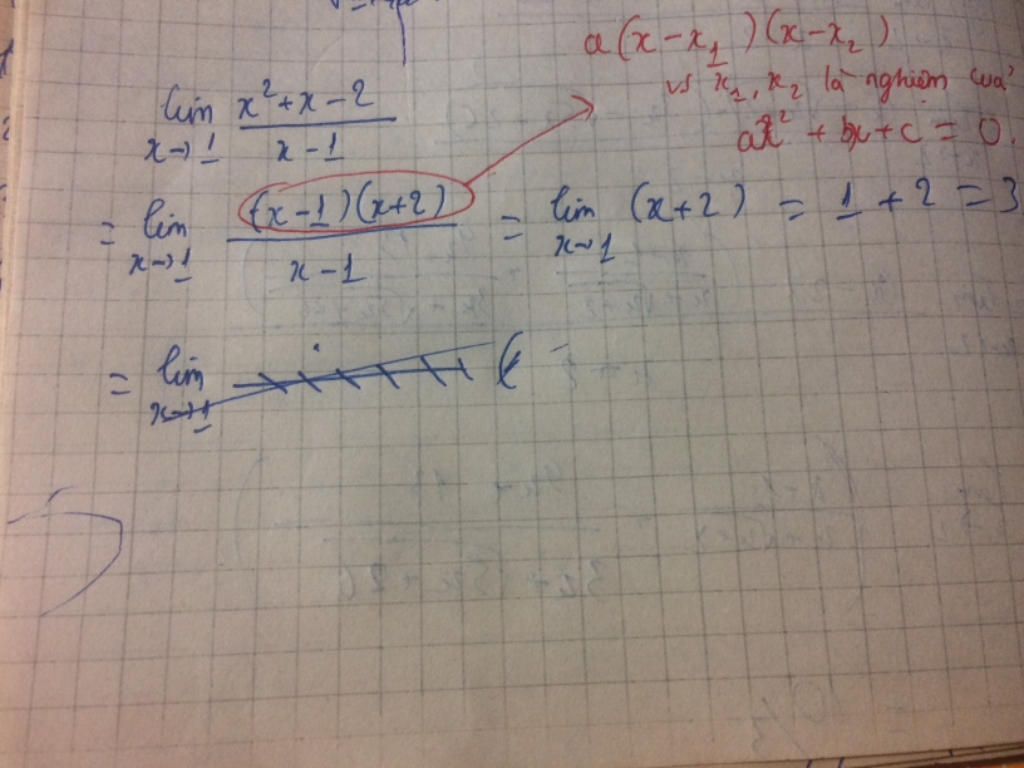 a(x-x₁)(x-x₂)
vs x₁, x₂ là nghiệm của
ax² + bx + c = 0.
lim x→1 (x²+x-2)/(x-1)
= lim x→1 ((x-1)(x+2))/(x-1) = lim x→1 (x+2) = 1 + 2 = 3
= lim x→1